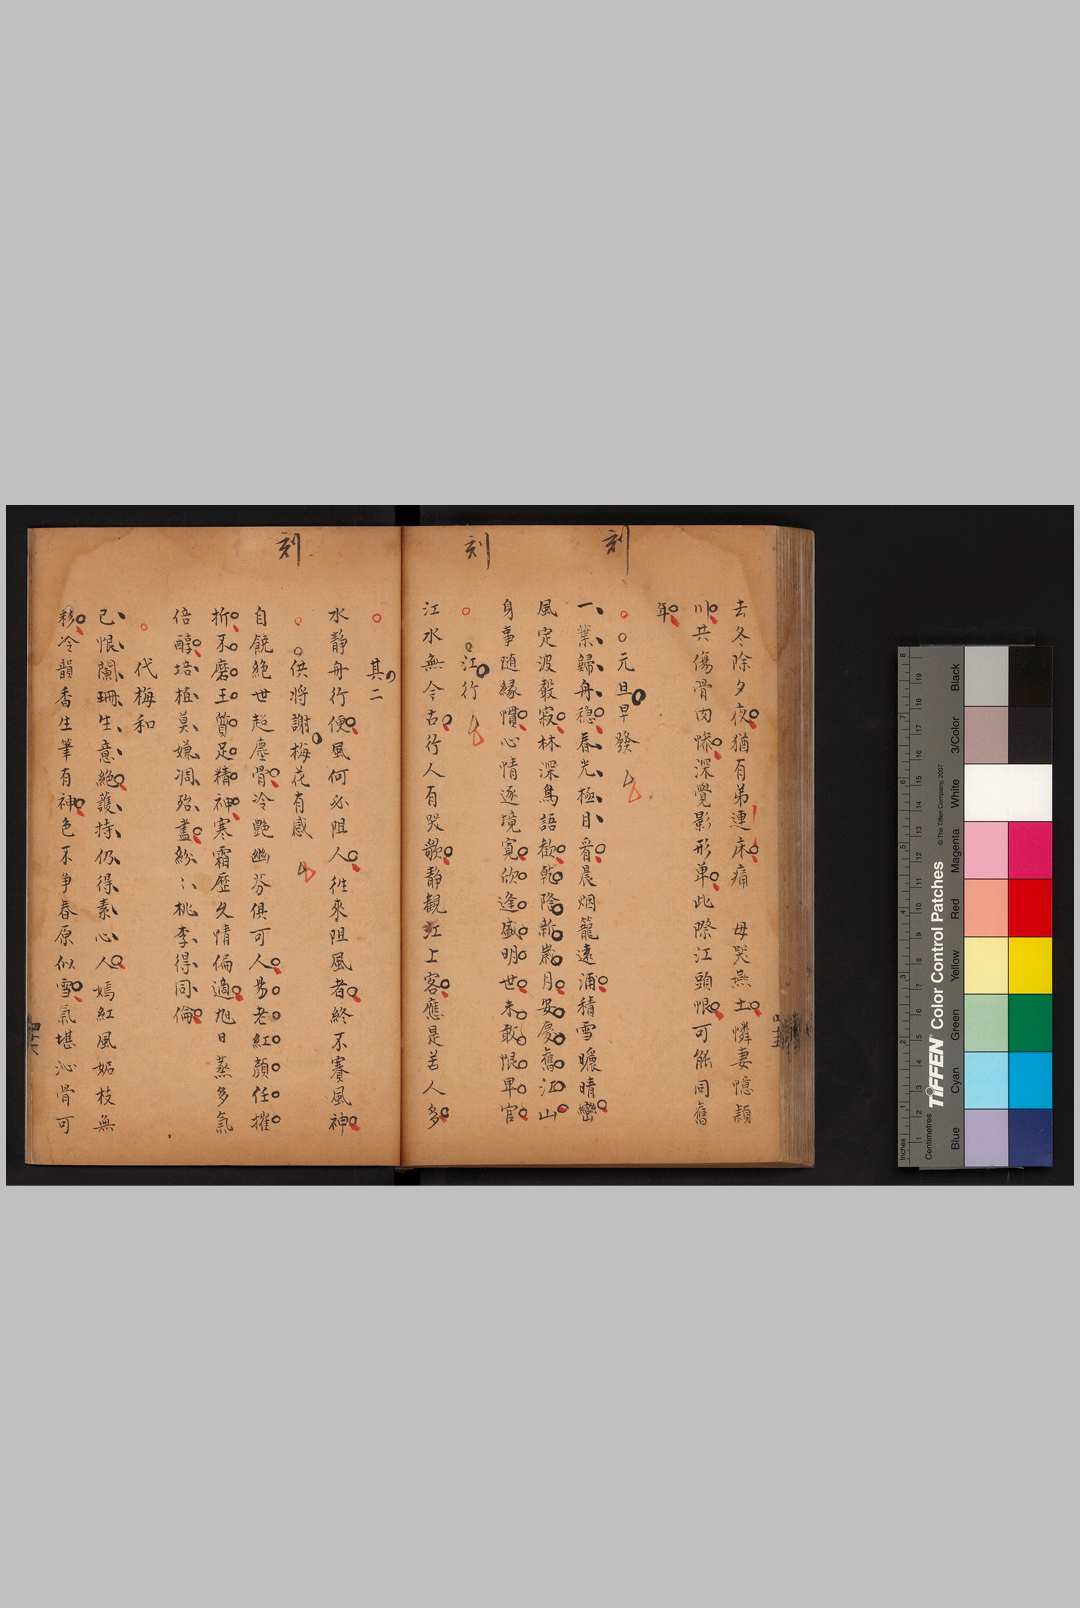 去冬除夕夜猶有弟連床痛 母哭燕土憐妻憶潁
川共傷骨肉慘深覺影形單此際江頭恨可能同舊
年
刻
元旦早發
一葉歸舟穩春光極目看晨烟籠遠浦積雪曬晴巒
風定波聲寂林深鳥語歡乾隆新歲月安慶舊江山
身事隨緣慣心情逐境寬欣逢盛明世未敢恨卑官
刻
江行
江水無今古行人有哭歌靜觀江上客應是苦人多
其二
水靜舟行便風何必阻人往來阻風者終不賽風神
刻
供將謝梅花有感
自饒絕世超塵骨冷艷幽芬俱可人易老紅顏任摧
折不磨玉質足精神寒霜歷久情偏適旭日蒸多氣
倍醇培植莫嫌凋殆盡紛〻桃李得同倫
代梅和
已恨闌珊生意絕護持仍得素心人嫣紅風妬枝無
彩冷韻香生筆有神色不爭春原似雪氣堪沁骨可
Inches
Centimetres
TIFFEN Color Control Patches
© The Tiffen Company, 2007
Blue
Cyan
Green
Yellow
Red
Magenta
White
3/Color
Black